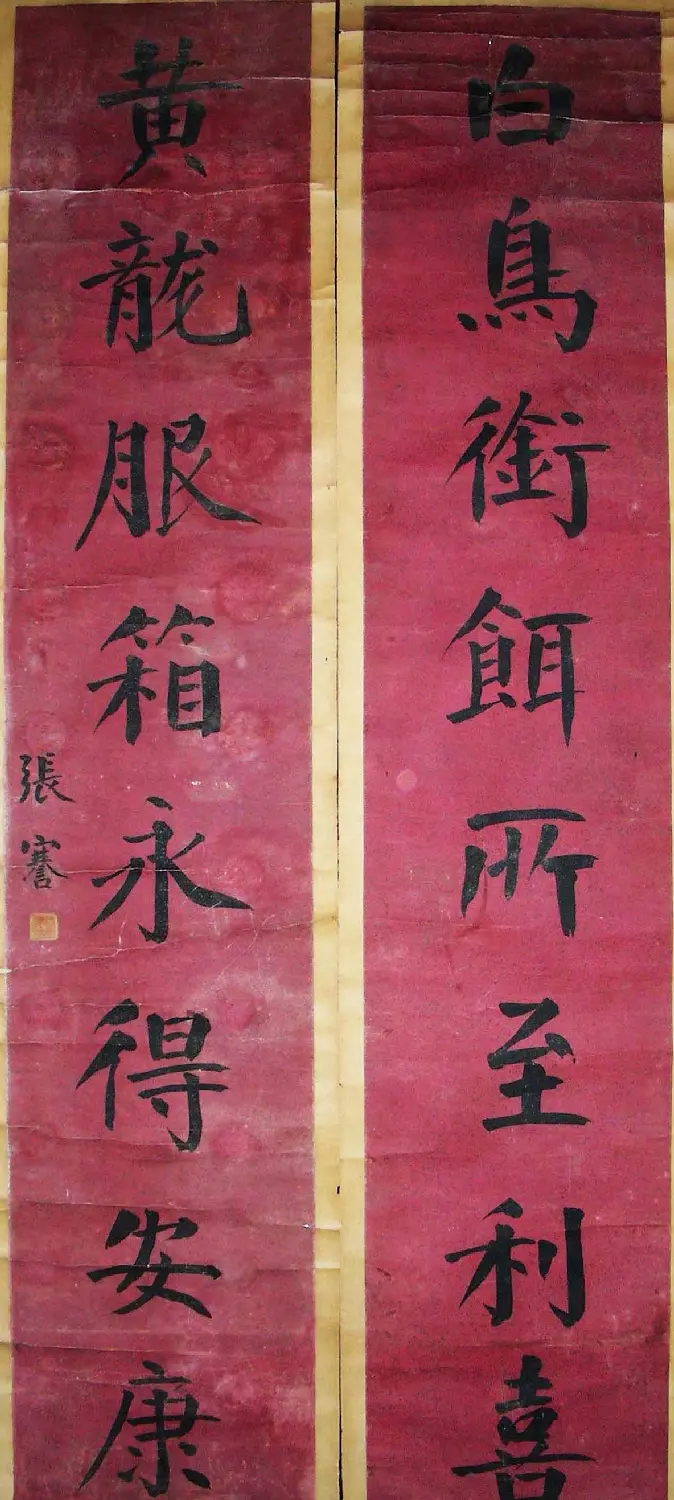 白鳥銜餌所至利喜
黄龍服箱永得安康
張謇